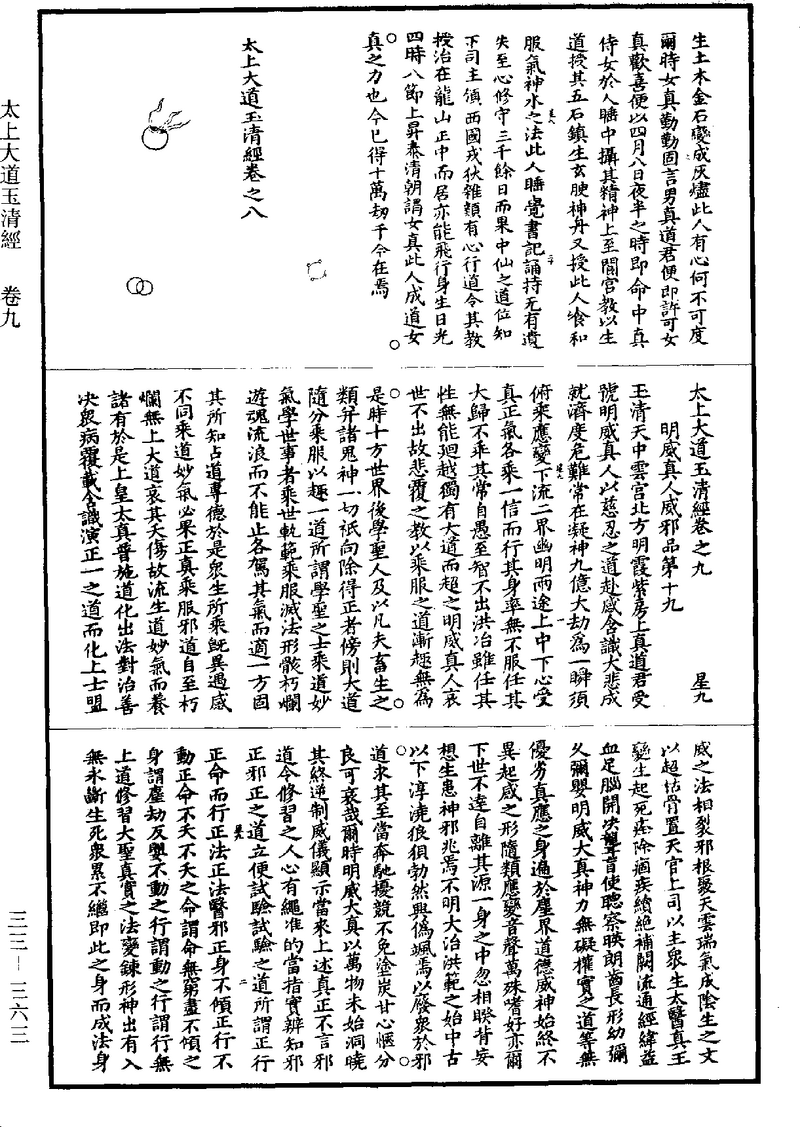 太上大道玉清經　卷九
三三－三六三
生土木金石變成灰燼此人有心何不可度
爾時女真勤勤固言男真道君便即許可女
真歡喜便以四月八日夜半之時即命中真
侍女於人睡中攝其精神上至閶宮教以生
道授其五石鎮生玄腴神丹又授此人飡和
服氣神水之法此人睡覺書記誦持无有遺
失至心修守三千餘日而果中仙之道位知
下司主領西國戎狄雜類有心行道令其教
授治在龍山正中而居亦能飛行身生日光
四時八節上昇泰清朝謁女真此人成道女
真之力也今已得十萬劫于今在焉
太上大道玉清經卷之八
太上大道玉清經卷之九　星九
明威真人威邪品第十九
玉清天中雲宮北方明霞紫房上真道君受
號明威真人以慈忍之道赴感含識大悲成
就濟度危難常在凝神九億大劫為一瞬須
俯來應變下流二界幽明兩途上中下心受
真正氣各乘一信而行其身率無不服任其
大歸不乖其常自愚至智不出洪冶雖任其
性無能迴越獨有大道而超之明威真人哀
世不出故悲覆之教以乘服之道漸趣無為
是時十方世界後學聖人及以凡夫畜生之
類并諸鬼神一切祇向除得正者傍則大道
隨分乘服以趣一道所謂學聖之士乘道妙
氣學世事者乘世軌範乘服滅法形骸朽爛
遊魂流浪而不能止各駕其氣而適一方固
其所知占道尋德於是眾生所乘旣異過感
不同乘道妙氣必果正真乘服邪道自至朽
爛無上大道哀其夭傷故流生道妙氣而養
諸有於是上皇太真普施道化出法對治善
決眾病覆載含識演正一之道而化上士盟
威之法相裂邪根髮天雲瑞氣成陰生之文
以超枯骨置天官上司以主眾生太醫真王
變生起死痊除痼疾續絕補闕流通經緯益
血足腦開決聾盲使聰察映朗齒長形幼彌
久彌嬰明威大真神力無礙權實之道等無
優劣真應之身遍於塵界道應威神始終不
異起感之形隨類應變音聲萬殊嗜好亦爾
下世不達自離其源一身之中忽相暌背妄
想生患神邪兆焉不明大治洪範之始中古
以下淳澆狼狽勃然興僞颯焉以廢眾於邪
道求其至當奔馳擾競不免塗炭甘心愜分
良可哀哉爾時明威大真以萬物未始洞曉
其終逆制威儀顯示當來上述真正不言邪
道令修習之人心有繩准的當指實辨知邪
正邪正之道立便試驗試驗之道所謂正行
正命而行正法正法瞖邪正身不傾正行不
動正命不夭不夭之命謂命無窮盡不傾之
身謂塵劫反嬰不動之行謂動之行謂行無
上道修習大聖真實之法變鍊形神出有入
無永斷生死眾累不繼即此之身而成法身